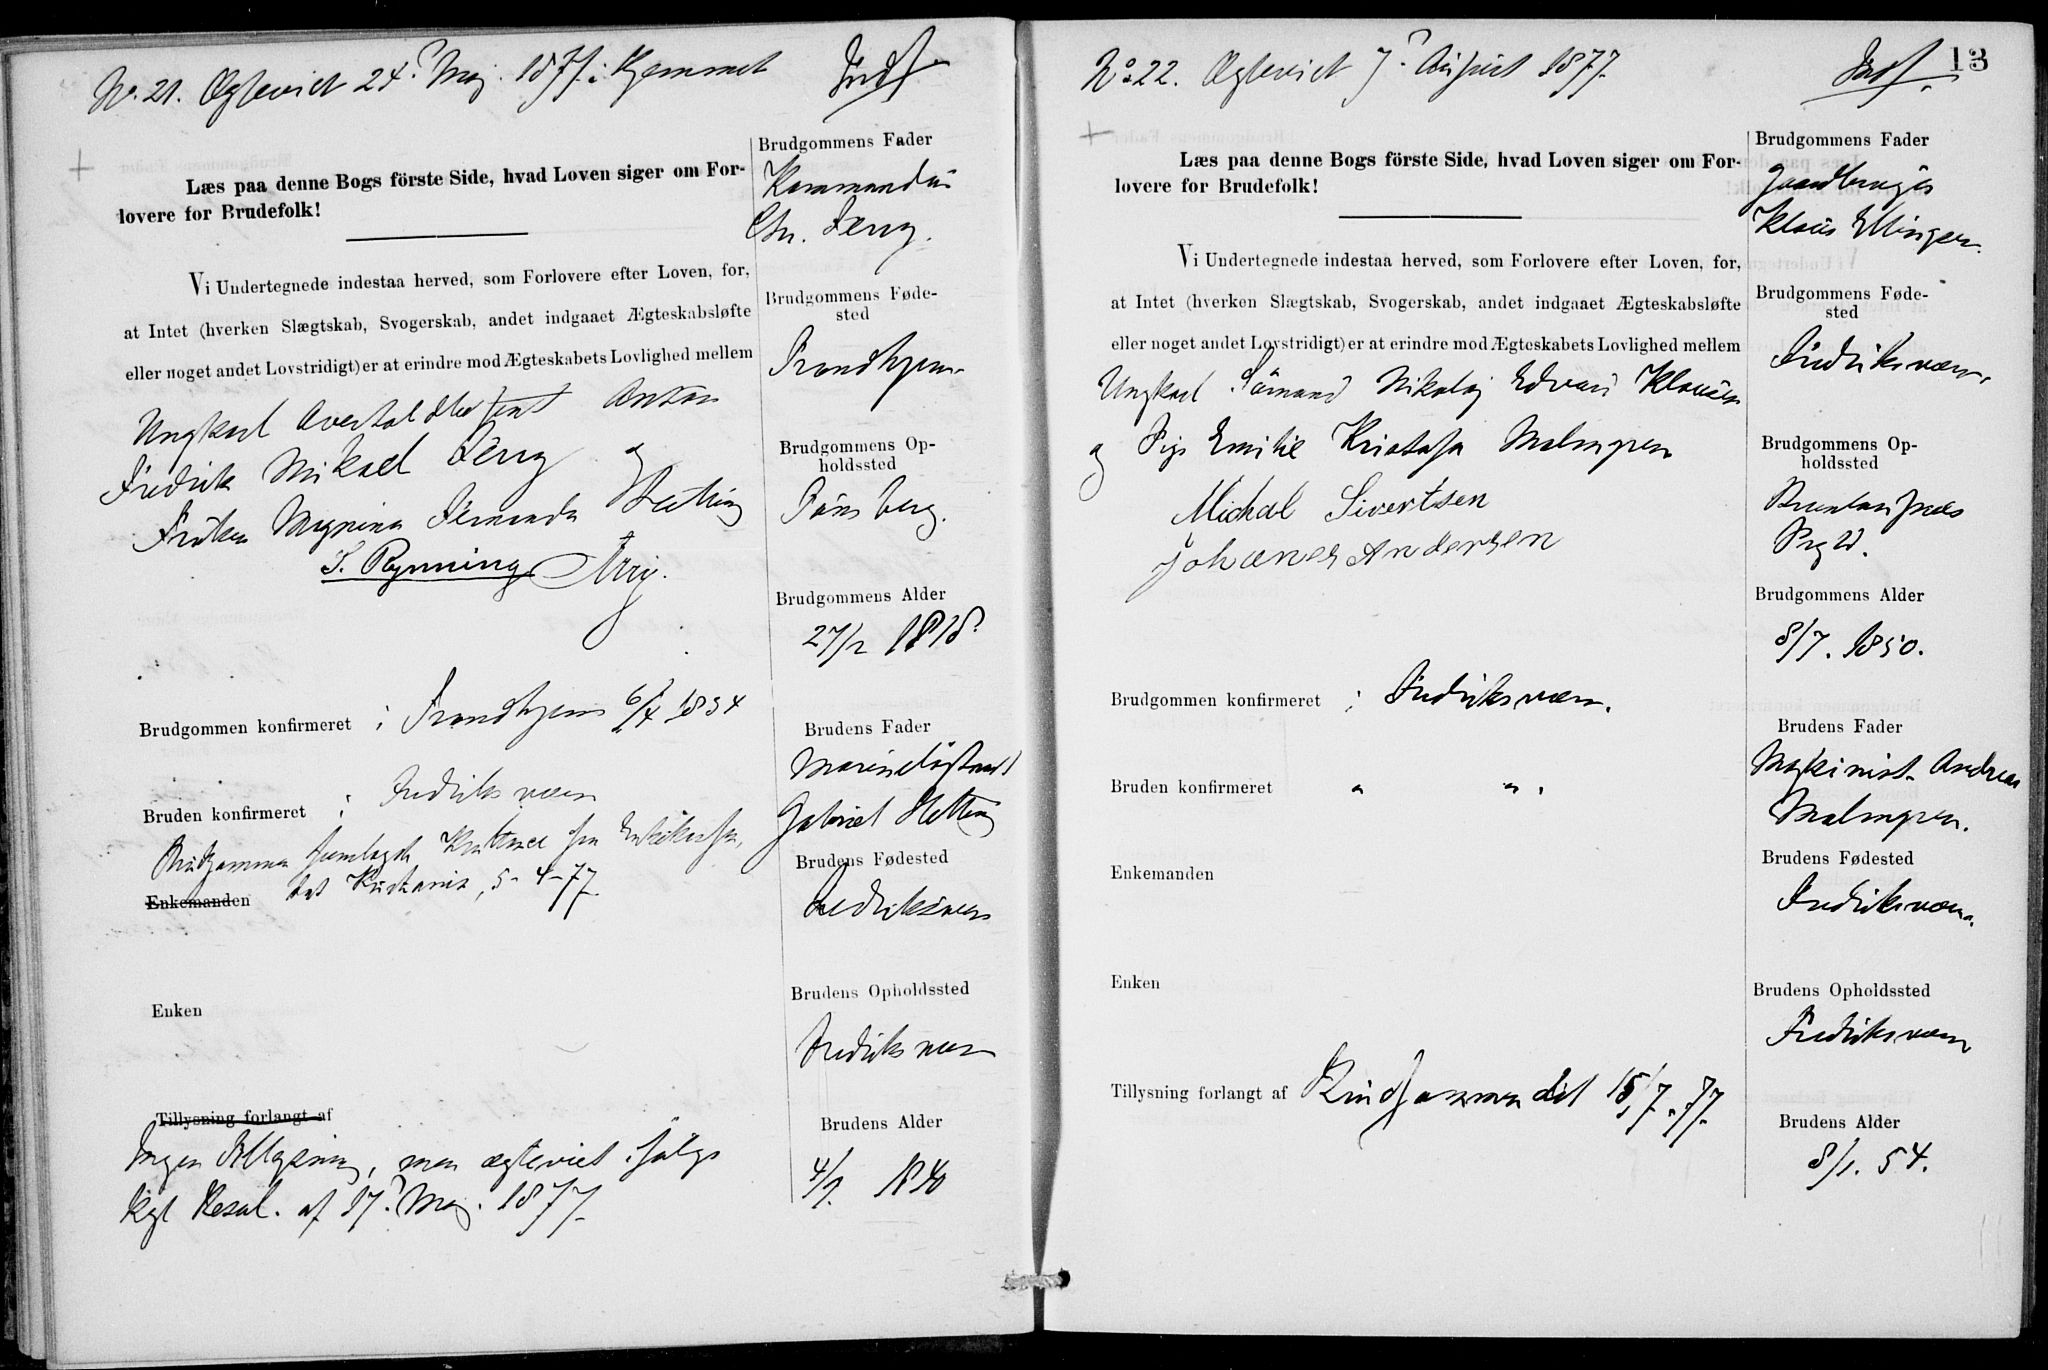 No. 21. Ægteviet 24. Maj. 1877 i Hjemmet Indf.
Læs paa denne Bogs förste Side, hvad Loven siger om For-
lovere for Brudefolk!
Vi Undertegnede indestaa herved, som Forlovere efter Loven, for,
at Intet (hverken Slægtskab, Svogerskab, andet indgaaet Ægteskabsløfte
eller noget andet Lovstridigt) er at erindre mod Ægteskabets Lovlighed mellem
Ungkarl Anton
Fredrik Mikael og
Frøken
S. Rynning
Brudgommen konfirmeret i Trondhjem 6/4 1834
Bruden konfirmeret i Fredriksværn
Brudgommen fra
Enkemanden 5-4-77.
Enken
Tillysning forlangt af
Ingen Tillysning, men ægteviet ifølge
Kgl Resol. af 17. Maj. 1877.
Brudgommens Fader
Kommandør
Chr.
Brudgommens Føde-
sted
Trondhjem
Brudgommens Op-
holdssted
Tönsberg.
Brudgommens Alder
27/2 1818
Brudens Fader
Gabriel
Brudens Fødested
Fredriksværn
Brudens Opholdssted
Fredriksværn
Brudens Alder
1840
13
No 22. Ægteviet 7. August 1877. Indf.
Læs paa denne Bogs förste Side, hvad Loven siger om For-
lovere for Brudefolk!
Vi Undertegnede indestaa herved, som Forlovere efter Loven, for,
at Intet (hverken Slægtskab, Svogerskab, andet indgaaet Ægteskabsløfte
eller noget andet Lovstridigt) er at erindre mod Ægteskabets Lovlighed mellem
Ungkarl Sömand Nikolaj Edvard Klausen
og Pige Emilie Malmgren
Michael Sivertsen
Johanes Andersen
Brudgommen konfirmeret i Fredriksværn.
Bruden konfirmeret " ".
Enkemanden
Enken
Tillysning forlangt af Brudgommen d 15/7.77.
Brudgommens Fader
Gaardbruger
Klaus Ellingsen.
Brudgommens Føde-
sted
Fredriksværn.
Brudgommens Op-
holdssted
Brunlanæs
Prgld.
Brudgommens Alder
8/7. 1850.
Brudens Fader
Maskinist Andreas
Malmgren.
Brudens Fødested
Fredriksværn.
Brudens Opholdssted
Fredriksværn
Brudens Alder
8/1. 54.